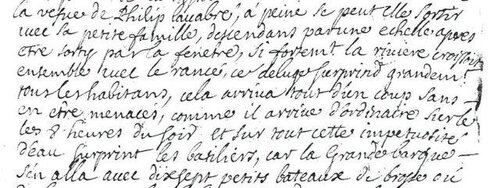 la vefue de Philip lacabre, a peine se peut elle sortir
avec sa petite famille, descendans par une echelle apres
etre sorty par la fenetre, si fortemt la riviere croissoit
ensemble avec le rance, ce deluge surprind grandemt
tous les habitans, cela arriva tout d'un coup sans
en etre menacés, comme il arrive d'ordinaire sur le
les 8 heures du soir et sur tout cette impetuosité
d'eau surprint les bateliers, car la Grande barque
s'en alla avec dixsept petits bateaux de broße ou